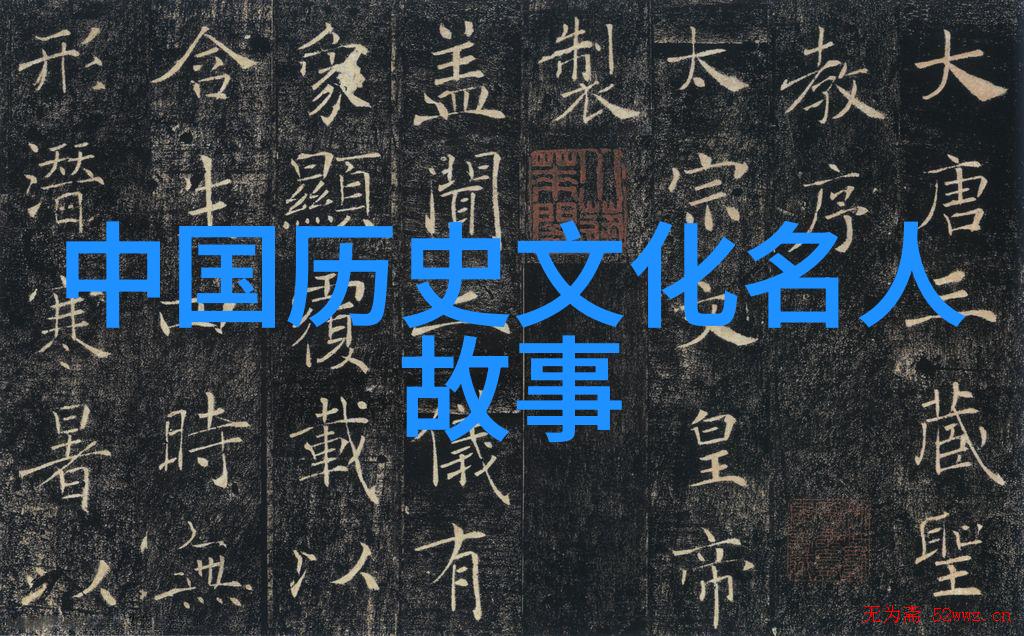 中国历史文化名人
故事
大唐三藏聖
教序
太宗文皇帝
製
盖聞二儀有
象顯覆載以
含生四時無
形潛寒暑以
无为斋 52wwz.cn